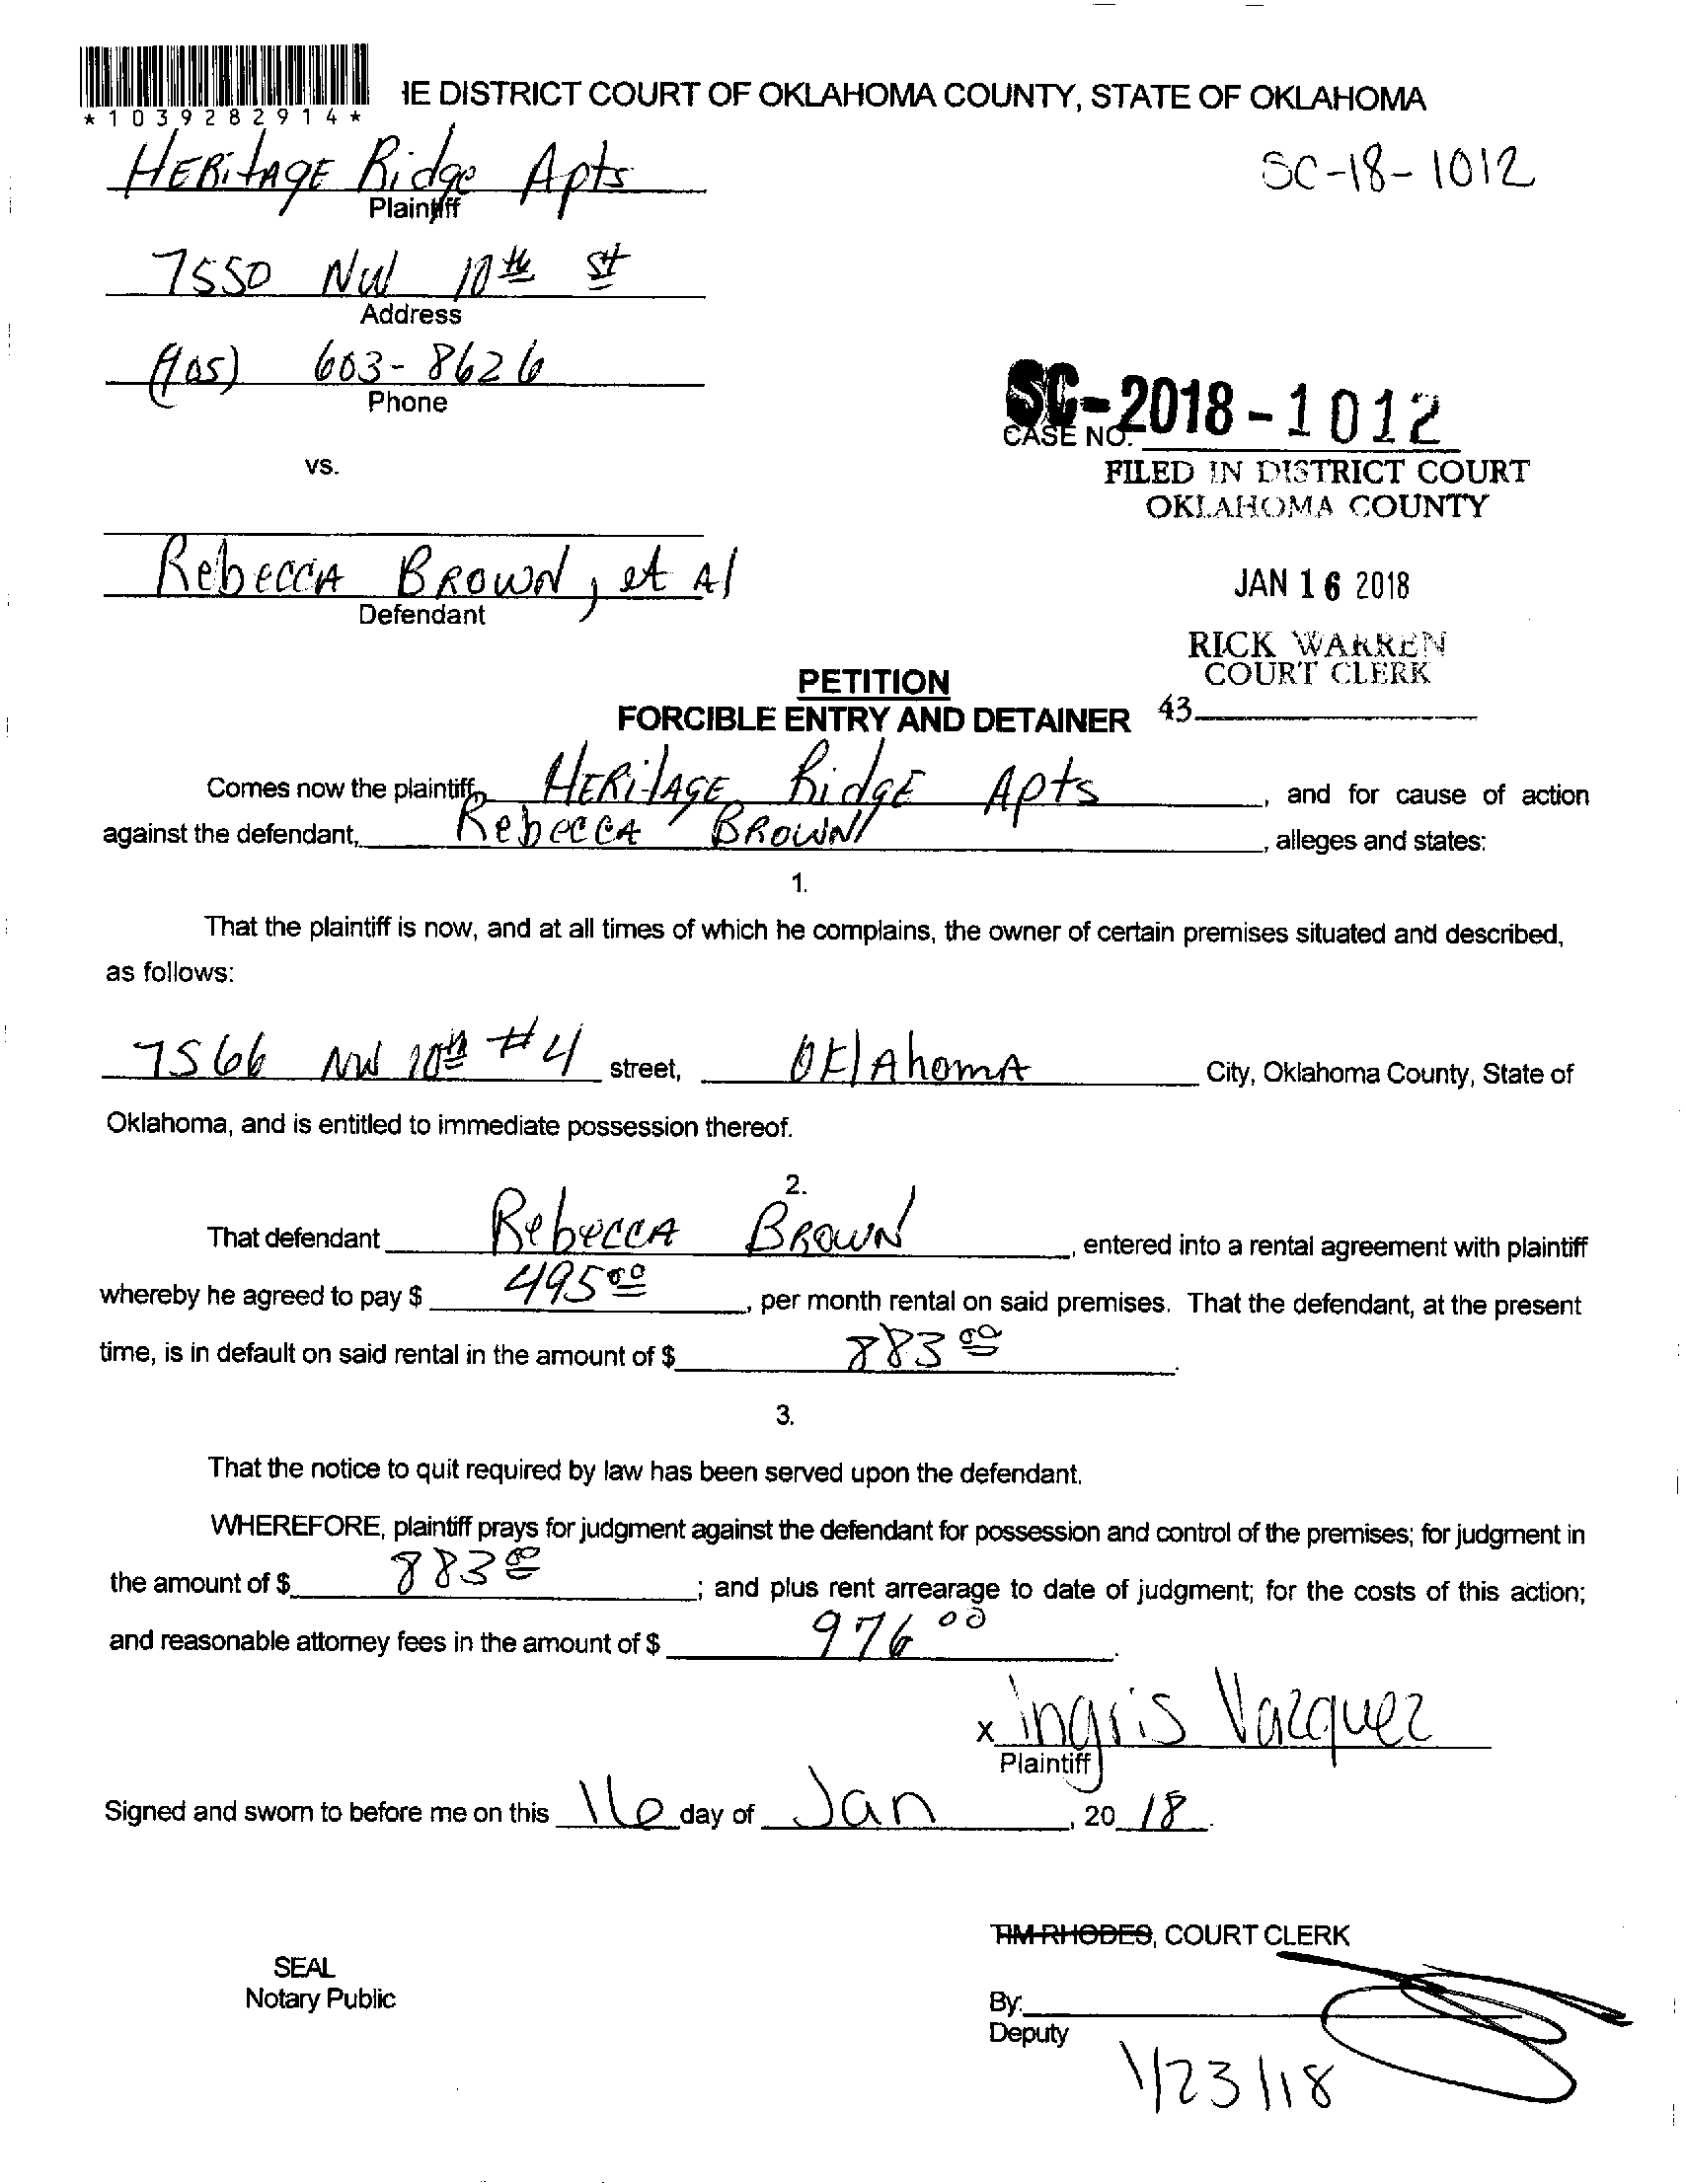 *1039282914*
IE DISTRICT COURT OF OKLAHOMA COUNTY, STATE OF OKLAHOMA
HERitAGE Ridge Apts
SC-18-1012
Plaintiff
7550 NW 10th St
Address
(405) 603-8626
Phone
SC-2018-1012
CASE NO.
vs.
FILED IN DISTRICT COURT
OKLAHOMA COUNTY
Rebecca Brown, et Al
Defendant
JAN 16 2018
RICK WARREN
COURT CLERK
PETITION
FORCIBLE ENTRY AND DETAINER
43
Comes now the plaintiff, HERitAGE RidgE Apts, and for cause of action
against the defendant, Rebecca Brown, alleges and states:
1.
That the plaintiff is now, and at all times of which he complains, the owner of certain premises situated and described,
as follows:
7566 NW 10th #4 street, OklAhomA City, Oklahoma County, State of
Oklahoma, and is entitled to immediate possession thereof.
2.
That defendant Rebecca Brown, entered into a rental agreement with plaintiff
whereby he agreed to pay $ 495 00, per month rental on said premises. That the defendant, at the present
time, is in default on said rental in the amount of $ 883 00.
3.
That the notice to quit required by law has been served upon the defendant.
WHEREFORE, plaintiff prays for judgment against the defendant for possession and control of the premises; for judgment in
the amount of $ 883 00; and plus rent arrearage to date of judgment; for the costs of this action;
and reasonable attorney fees in the amount of $ 976 00.
x Ingris Vazquez
Plaintiff
Signed and sworn to before me on this 16 day of Jan, 20 18.
TIM RHODES, COURT CLERK
SEAL
Notary Public
By:
Deputy
1/23/18